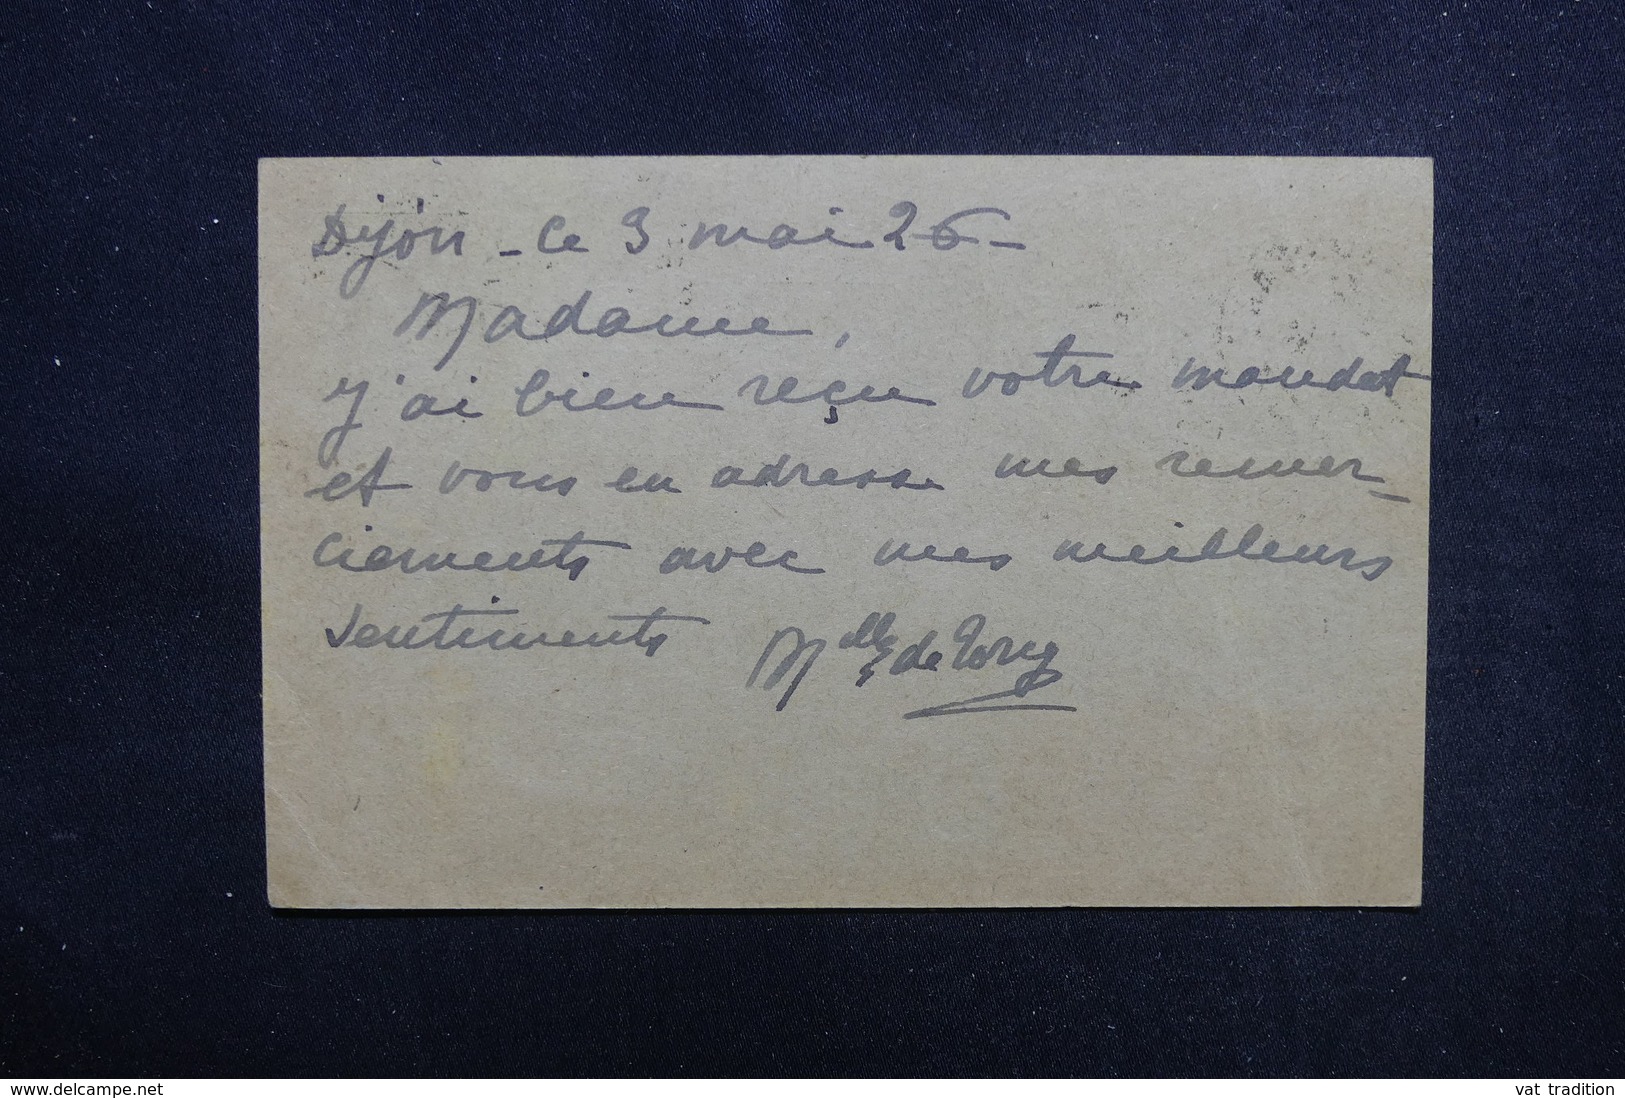 Dijon - ce 3 mai 26 -
Madame,
J'ai bien reçu votre mandat
et vous en adresse mes remer-
ciements avec mes meilleurs
sentiments Mlle de
www.delcampe.net
vat tradition